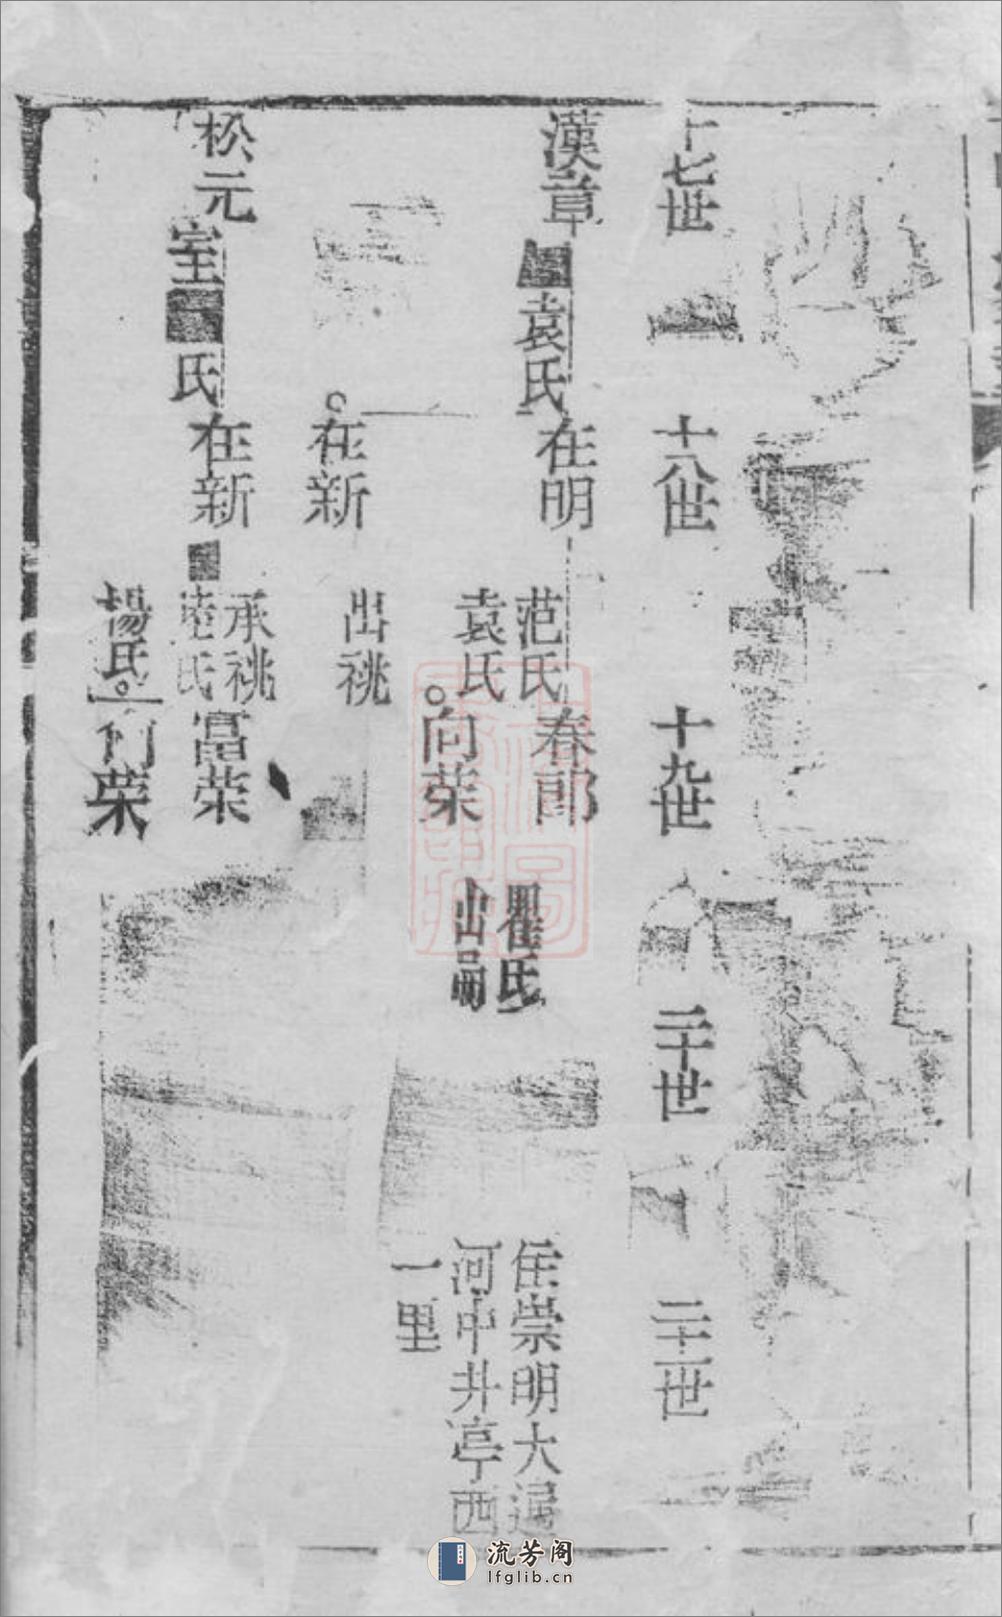 十七世
十八世
十九世
二十世
二十一世
漢章
袁氏
在明
范氏
袁氏
春郎
瞿氏
住崇明大
河中井亭西
一里
向荣
出嗣
在新
出祧
松元
室
氏
在新
承祧
氏
富荣
楊氏
向荣
流芳阁
lfglib.cn